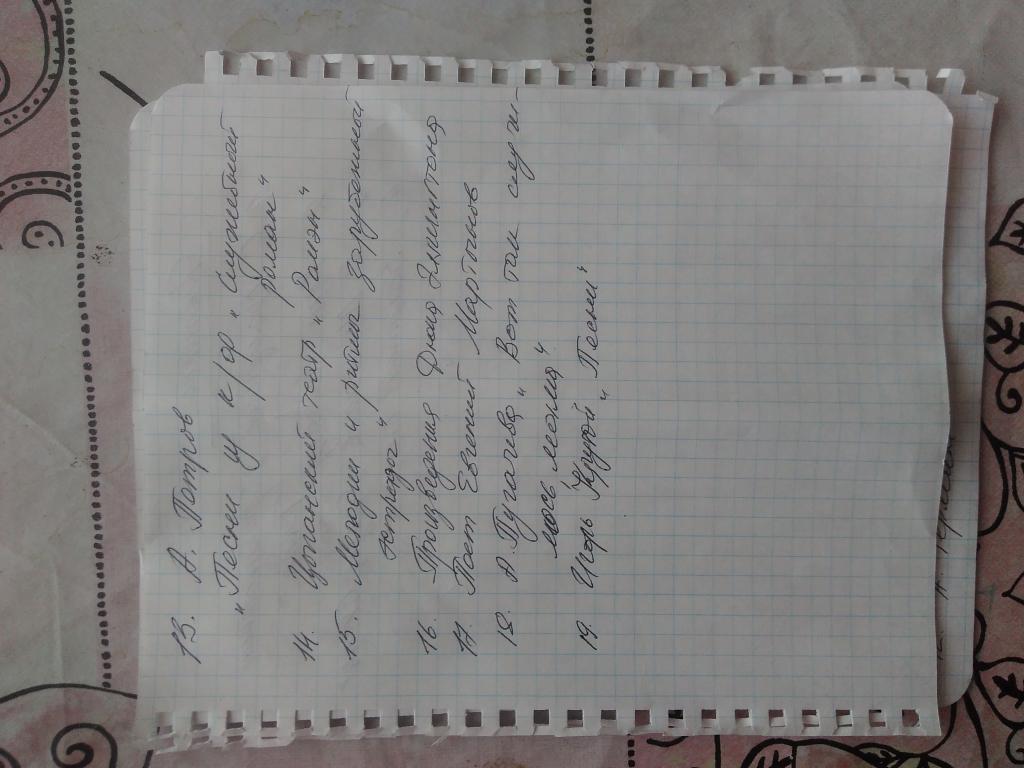 13. А. Потров
„Песни у к/ф „Служебной
роман"
14. Цыганский театр „Ромэн"
15. Мелодии и ритмы зарубежной
эстрады"
16. Произведения Дюка Эллингтона
17. Поет Евгений Мартынов
18. А. Пугачева „Вот так случи-
лось мама"
19. Игорь Крутой „Песни"